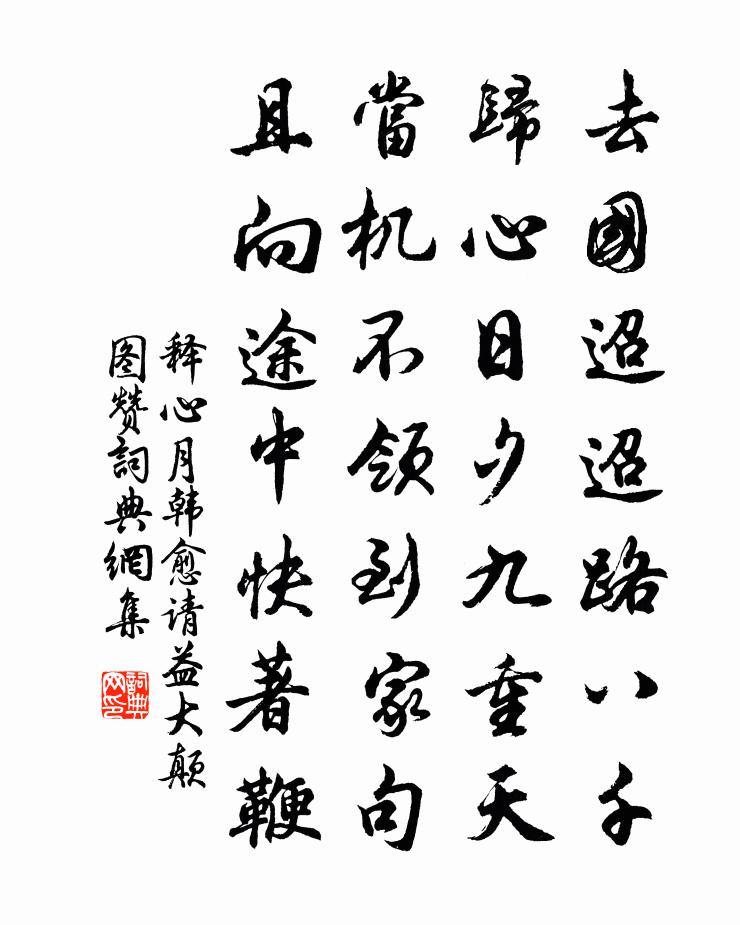 去國迢迢路八千
歸心日夕九重天
當机不領到家句
且向途中快著鞭
释心月韩愈请益大颠
图赞詞典網集
詞典
网印